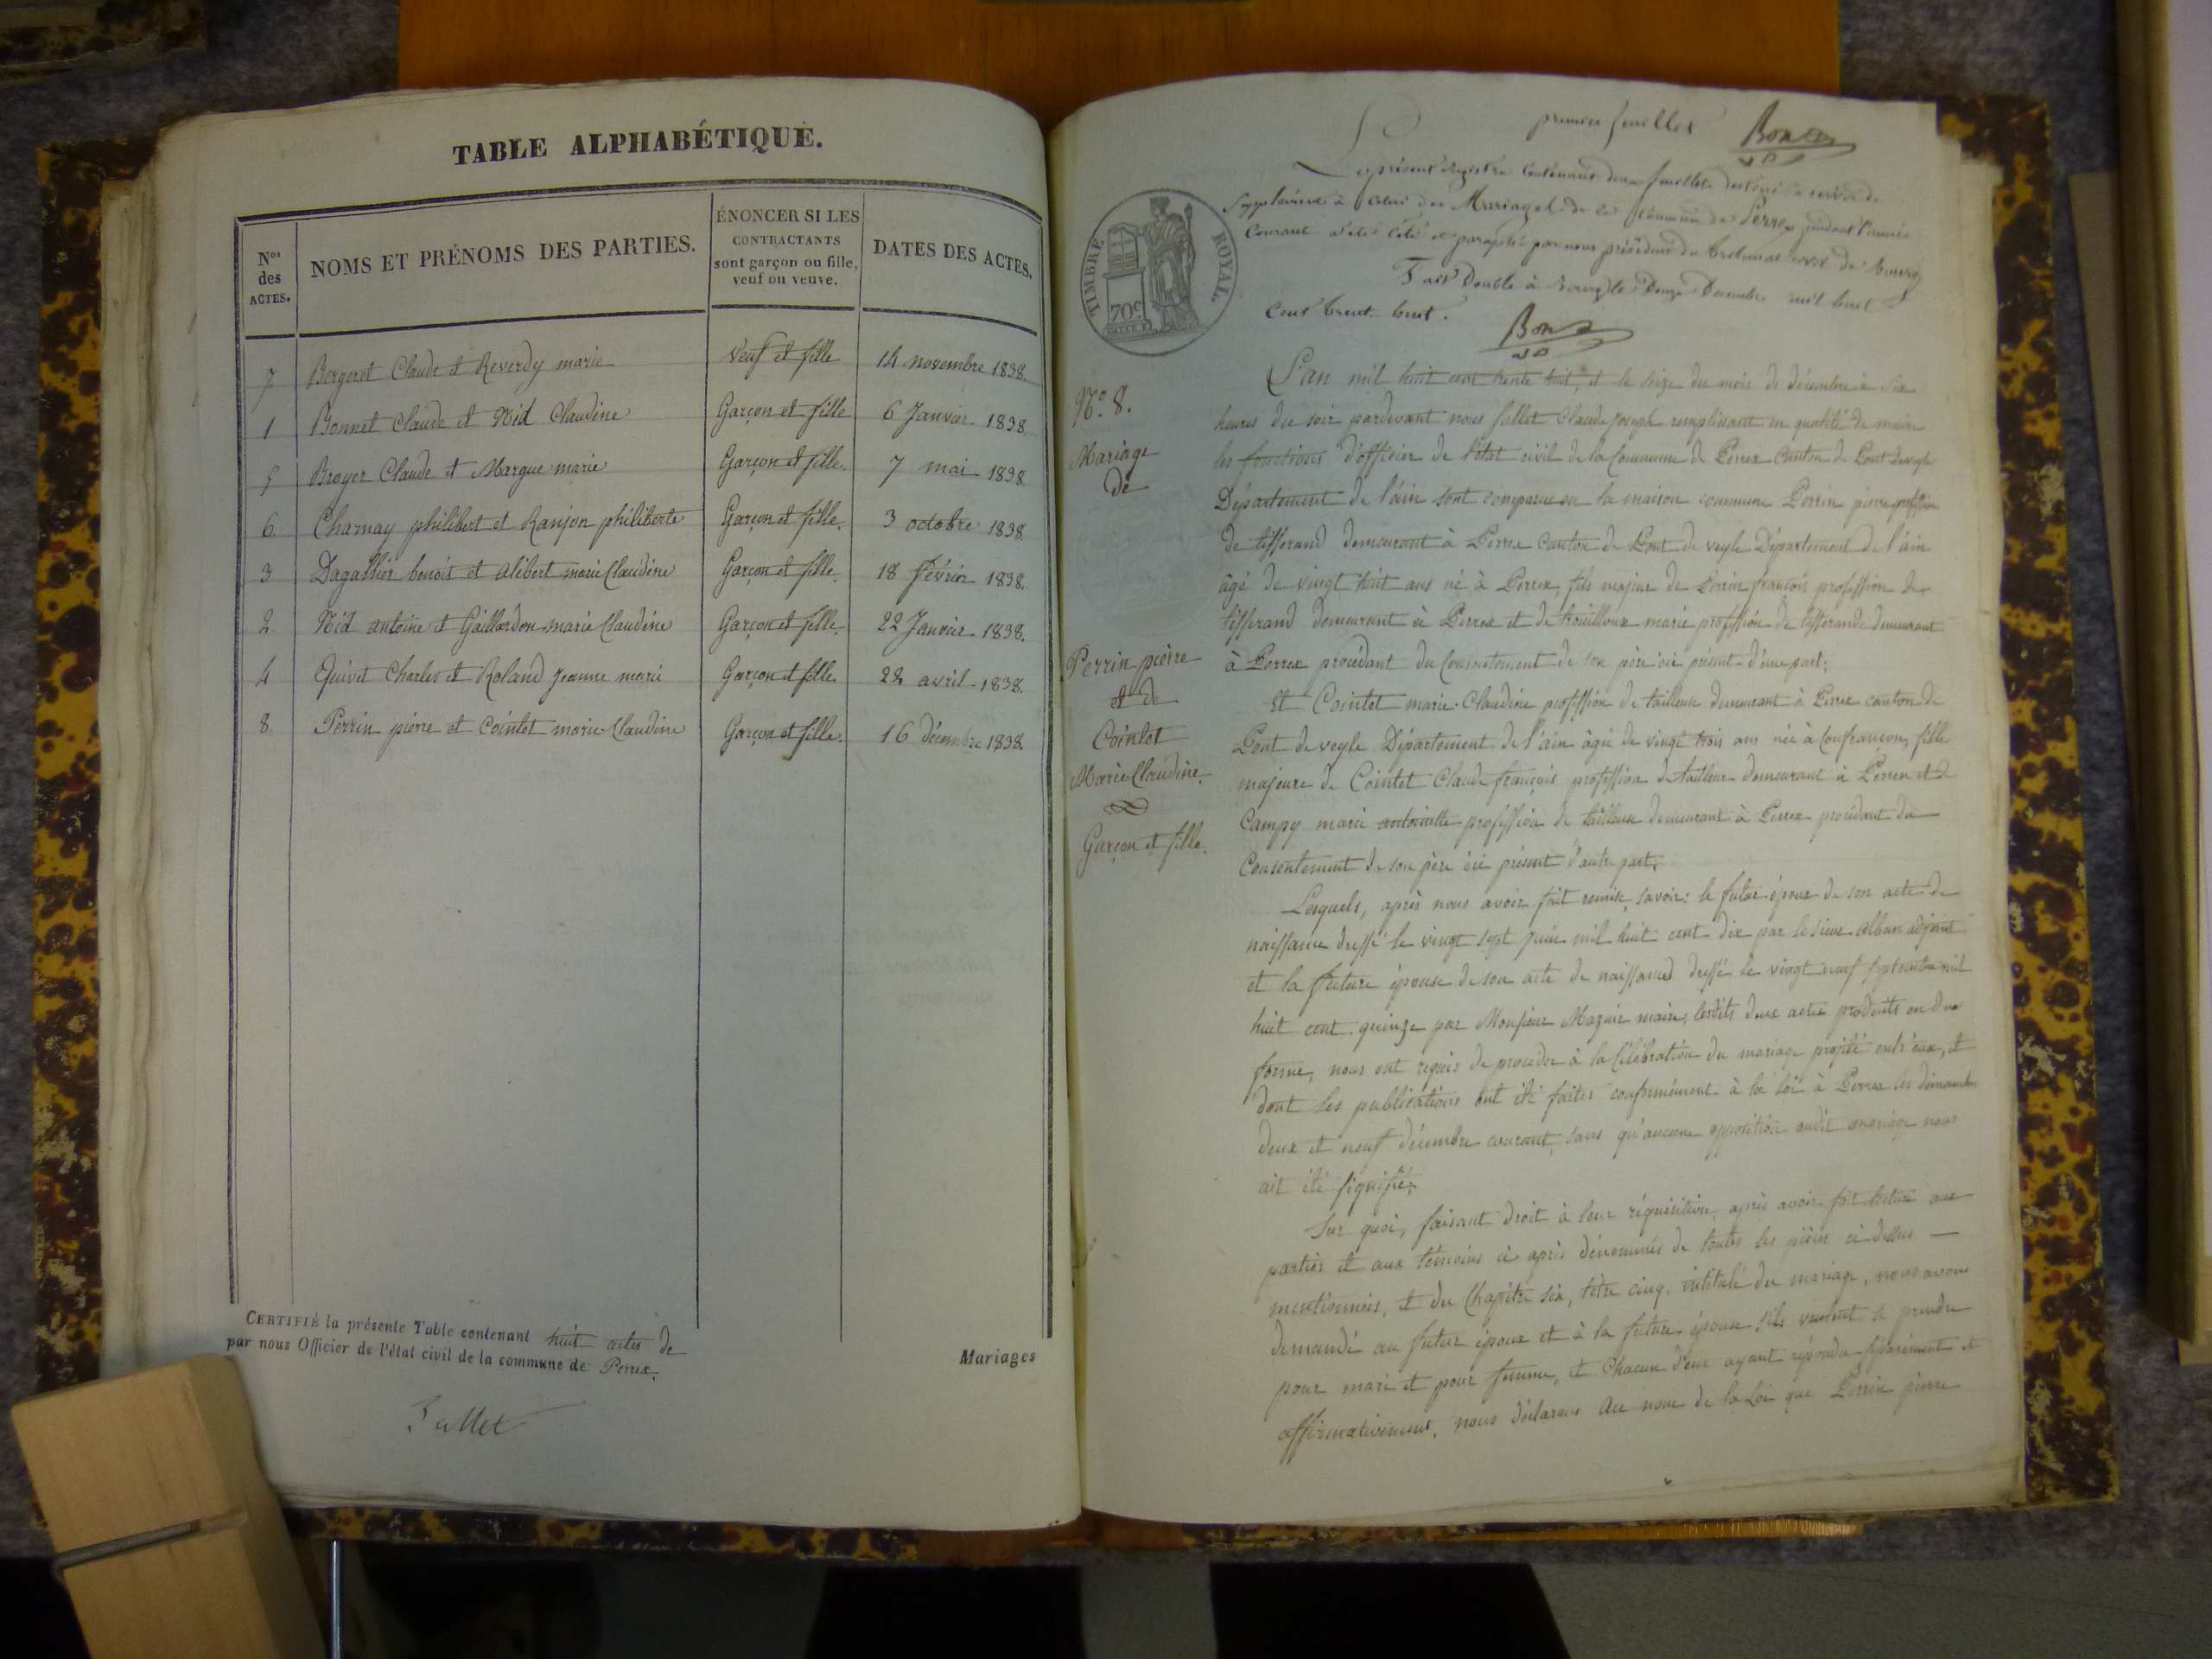 TABLE ALPHABÉTIQUE.
Nos des ACTES.
NOMS ET PRÉNOMS DES PARTIES.
ÉNONCER SI LES CONTRACTANTS sont garçon ou fille, veuf ou veuve.
DATES DES ACTES.
7 Bergerot Claude et Reverdy marie Veuf et fille 14 novembre 1838.
1 Bonnet Claude et Nid Claudine Garçon et fille 6 Janvier 1838
5 Broyer Claude et Margue marie Garçon et fille. 7 mai 1838
6. Charnay philibert et Ranjon philiberte Garçon et fille. 3 octobre 1838
3 Dagallier benoit et alibert marie Claudine Garçon et fille. 18 février 1838.
2. Nid antoine et Gaillardon marie Claudine Garçon et fille. 22 Janvier 1838.
4 Quivet Charles et Roland jeanne marie Garçon et fille 22 avril 1838.
8. Perrin pierre et Cointet marie Claudine Garçon et fille. 16 décembre 1838.
CERTIFIÉ la présente Table contenant huit actes de
par nous Officier de l'état civil de la commune de Perrex.
Mariages
Fallet
premier feuillet
Le présent registre contenant deux feuillets destiné à servir de
Supplément à celui des Mariages de la Commune de Perrex pendant l'année
Courante a été coté et paraphé par nous président du tribunal civil de Bourg
Fait Double à Bourg le Douze Décembre mil huit
Cent trente huit.
TIMBRE ROYAL.
70c
No. 8.
Mariage
de
Perrin pierre
et de
Cointet
Marie Claudine.
Garçon et fille.
L'an mil huit cent trente huit, et le seize du mois de décembre à six
heures du soir pardevant nous fallet Claude joseph remplissant en qualité de maire
les fonctions d'officier de l'état civil de la Commune de Perrex Canton de Pont Deveyle
Département de l'ain sont comparus en la maison commune Perrin pierre profession
de tisserand demeurant à Perrex Canton de Pont de veyle Département de l'ain
âgé de vingt huit ans né à Perrex, fils majeur de Perrin françois profession de
tisserand demeurant à Perrex et de trouilloux marie profession de tisserande demeurant
à Perrex procédant du Consentement de son père ici présent d'une part;
Et Cointet marie Claudine profession de tailleuse demeurant à Perrex canton de
Pont de veyle Département de l'ain âgée de vingt trois ans née à Confrançon, fille
majeure de Cointet Claude françois profession de tailleur demeurant à Perrex et de
Campy marie antoinette profession de tailleuse demeurant à Perrex procédant du
Consentement de son père ici présent d'autre part;
Lesquels, après nous avoir fait remise, savoir: le futur époux de son acte de
naissance dressé le vingt sept Juin mil huit cent dix par le sieur alban adjoint
et la future épouse de son acte de naissance dressé le vingt neuf septembre mil
huit cent quinze par Monsieur Mazuir maire, lesdits deux actes produits en due
forme, nous ont requis de procéder à la Célébration du mariage projeté entr'eux, et
dont les publications ont été faites conformément à la loi à Perrex les dimanches
deux et neuf décembre courant, sans qu'aucune opposition audit mariage nous
ait été signifié;
Sur quoi, faisant droit à leur réquisition, après avoir fait lecture aux
parties et aux témoins ci après dénommés de toutes les pièces ci dessus
mentionnées, et du Chapitre six, titre cinq, intitulé du mariage, nous avons
demandé au futur époux et à la future épouse, s'ils veulent se prendre
pour mari et pour femme, et Chacun d'eux ayant répondu séparément et
affirmativement, nous déclarons Au nom de la Loi que Perrin pierre